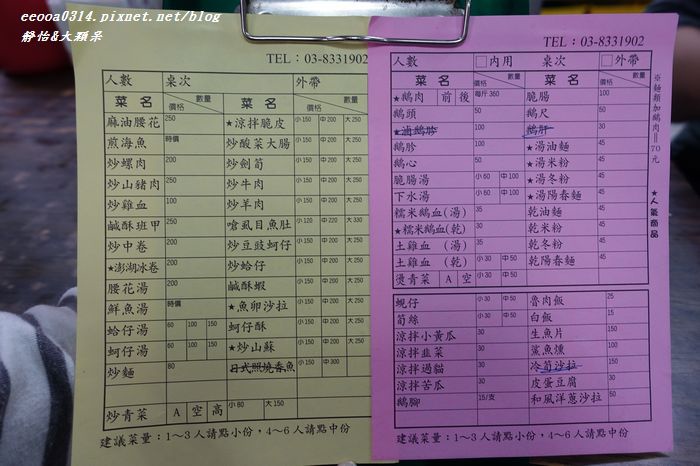 eeooa0314.pixnet.net/blog
靜怡&大顆呆
TEL：03-8331902
人數 桌次 外帶
菜名 價格 數量 菜名 價格 數量
麻油腰花 250 ★涼拌脆皮 小150 中200 大250
煎海魚 時價 炒酸菜大腸 小150 中200 大250
炒螺肉 200 炒劍筍 小150 中200 大250
炒山豬肉 250 炒牛肉 小150 中200 大250
炒雞血 100 炒羊肉 小150 中200 大250
鹹酥班甲 250 嗆虱目魚肚 小120 中220 大330
炒中卷 200 炒豆豉蚵仔 小150 中200 大250
★澎湖冰卷 200 炒蛤仔 小150 中200 大250
腰花湯 200 鹹酥蝦 小150 中200 大250
鮮魚湯 時價 ★魚卵沙拉 小150 中200 大250
蛤仔湯 60 100 150 蚵仔酥 小150 中200 大250
蚵仔湯 60 100 150 ★炒山蘇 小150 中200 大250
炒麵 80 日式照燒香魚 小150 中300
炒青菜 A 空 高 小80 大150
建議菜量：1～3人請點小份，4～6人請點中份
TEL：03-8331902
人數 □內用 桌次 □外帶
菜名 價格 數量 菜名 價格 數量
★鵝肉 前 後 每斤360 脆腸 100
鵝頭 50 鵝尺 50
★滷鵝胗 100 鵝肝 30
鵝胗 100 ★湯油麵 45
鵝心 50 ★湯米粉 45
脆腸湯 小60 中100 ★湯冬粉 45
下水湯 小60 中100 ★湯陽春麵 45
糯米鵝血(湯) 35 乾油麵 45
★糯米鵝血(乾) 35 乾米粉 45
土雞血 (湯) 35 乾冬粉 45
土雞血 (乾) 小30 中50 乾陽春麵 45
燙青菜 A 空 小30 中50
蜆仔 小30 中50 魯肉飯 25
筍絲 小30 中50 白飯 15
涼拌小黃瓜 30 生魚片 150
涼拌韭菜 30 鯊魚燻 100
涼拌過貓 30 冷筍沙拉 150
涼拌苦瓜 30 皮蛋豆腐 30
鵝腳 15/支 和風洋蔥沙拉 50
建議菜量：1～3人請點小份，4～6人請點中份
※麵類加鵝肉＝70元
★人氣商品